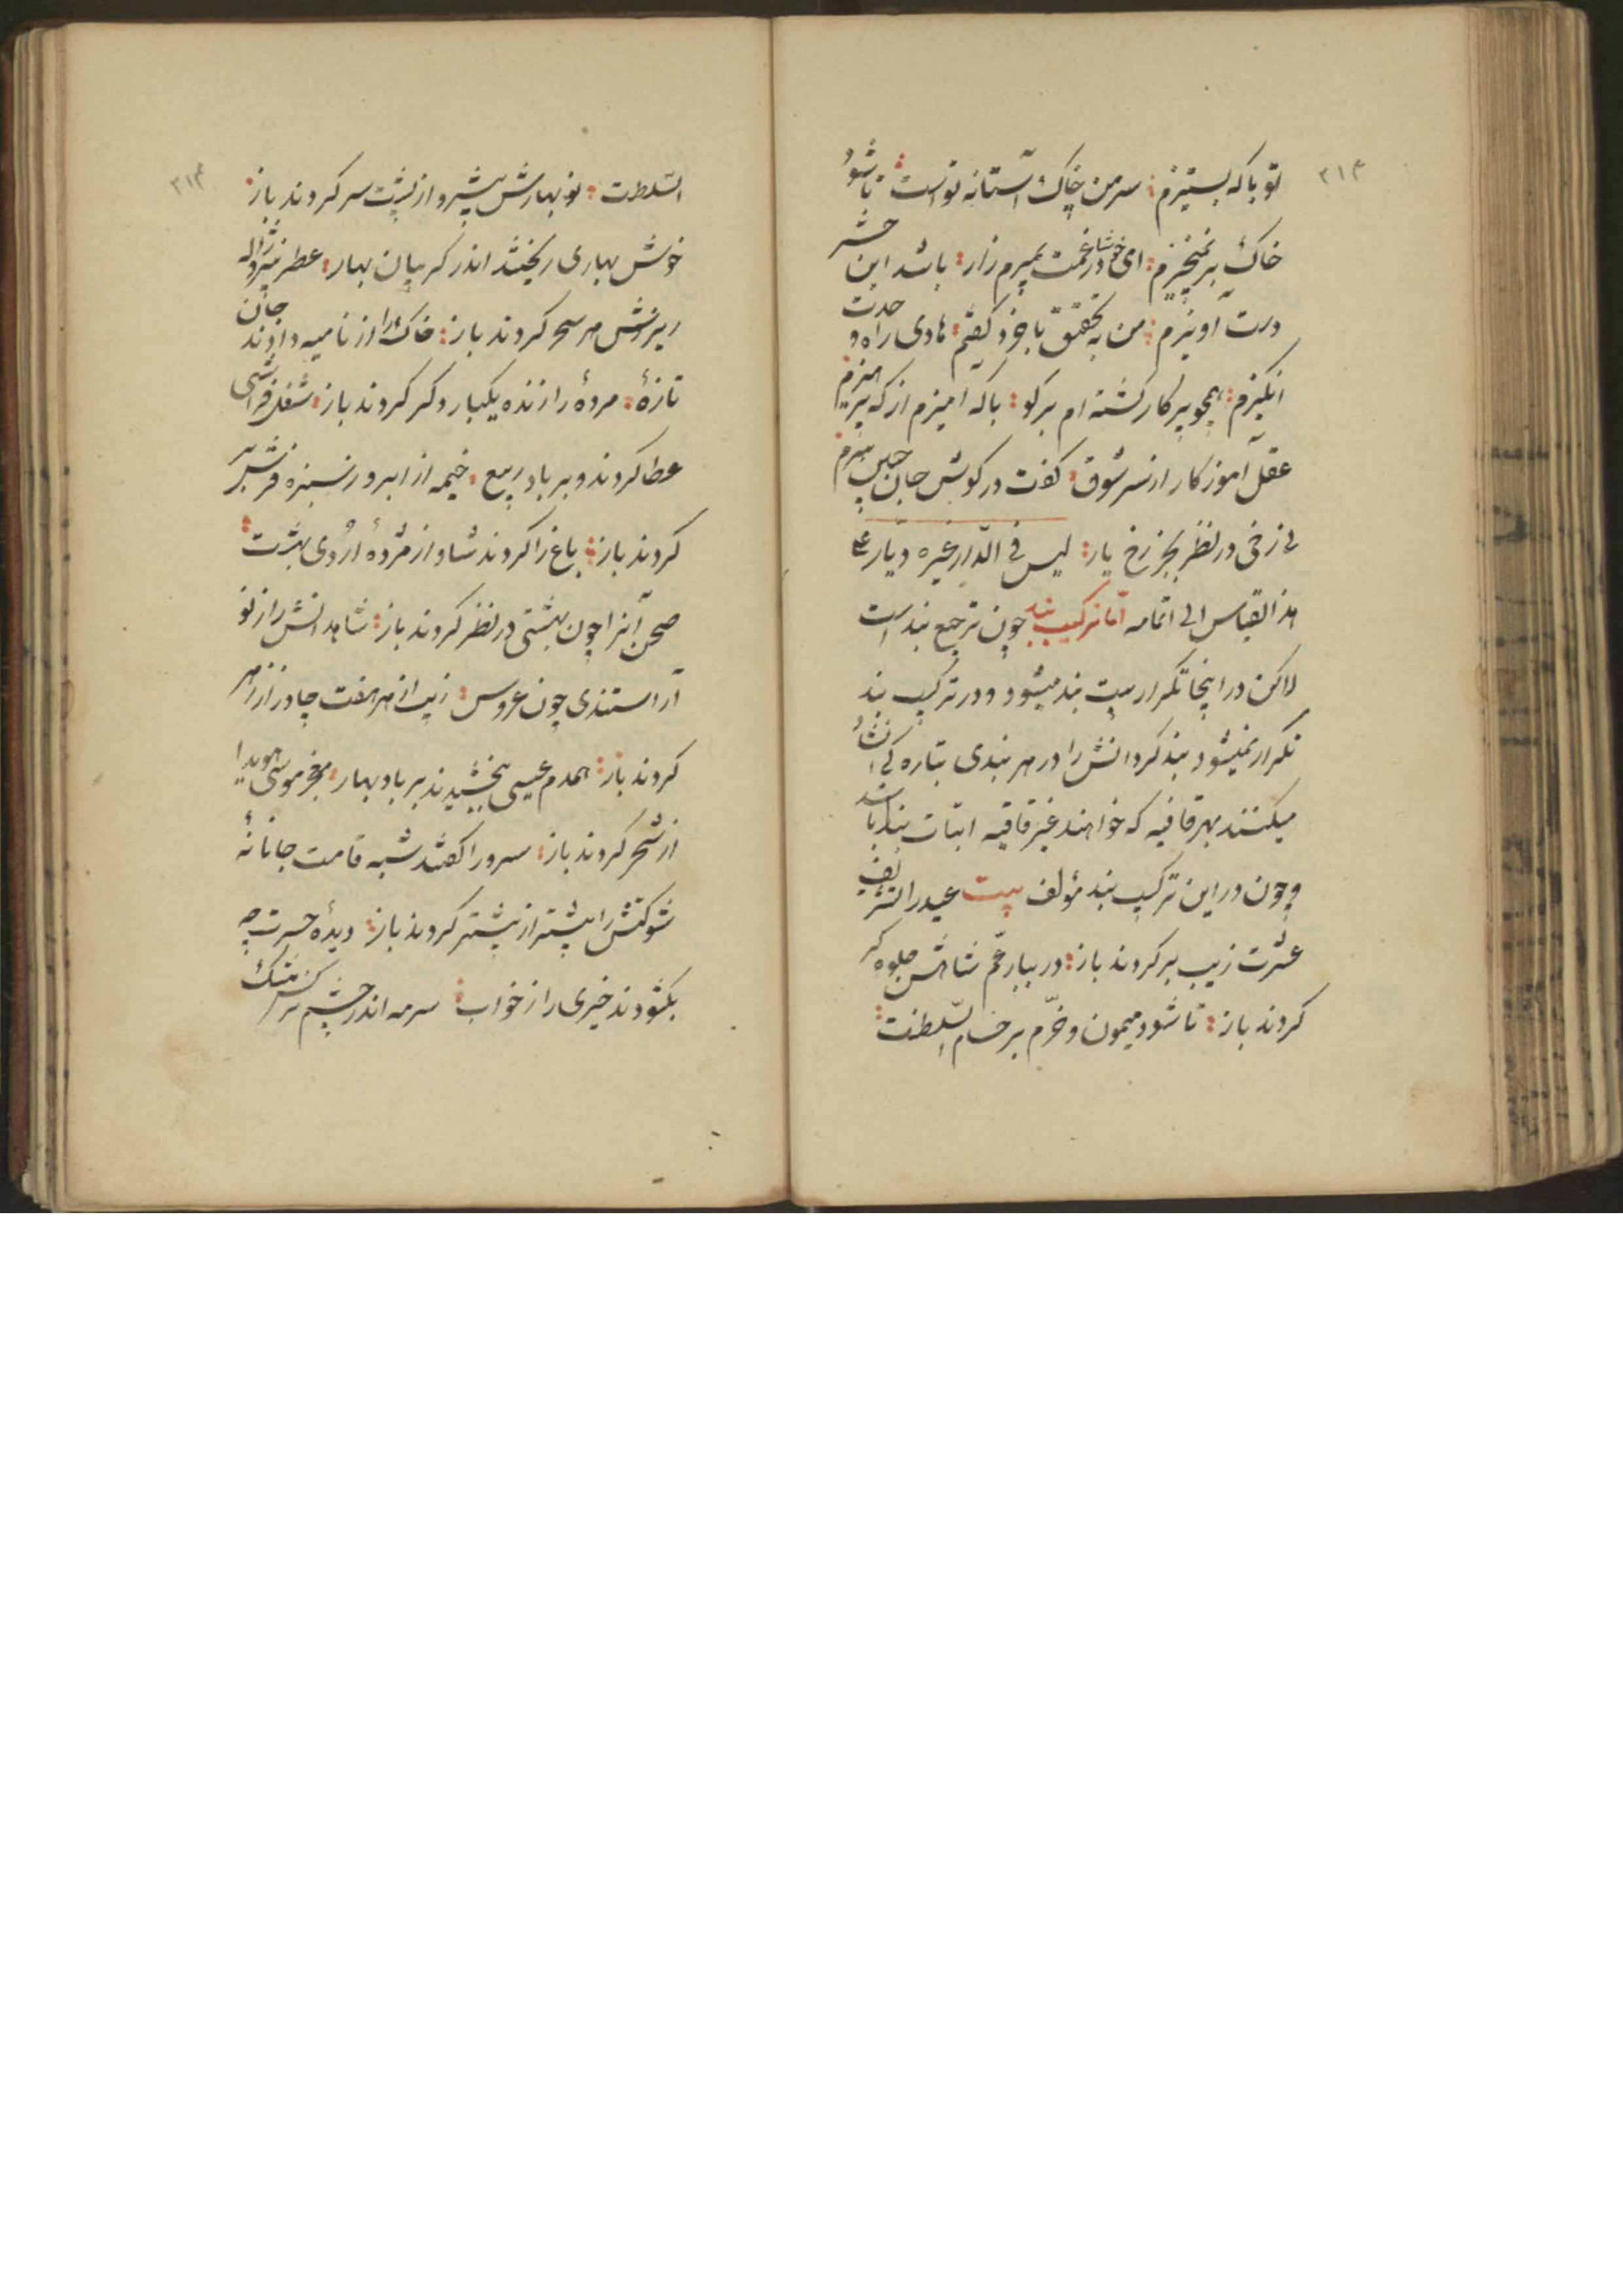 ۳۱۳
تو با که بستیزم : سر من خاک آستانه تو است : تا شود
خاک بر نمیخیزم : ای خوشا در غمت بمیرم زار : باشد این حشر
دست آویزم : من به تحقیق با خرد گفتم : هادی راه و حدت
انگیزم : همچو پرکار گشته ام بر گو : با که آمیزم از که پرهیزم
عقل آموزکار از سر شوق : گفت در گوش جان
نی رخی در نظر بجز رخ یار : لیس فی الدار غیره دیار ع
هذا القیاس الی اتمامه اما ترکیب بند چون ترجیع بند است
لاکن در اینجا تکرار بیت بند میشود و در ترکیب بند
تکرار نمیشود بند کردانش را در هر بندی بتاره کی انشاد
میکنند بهر قافیه که خواهند غیر قافیه ابیات بند باشد
چون در این ترکیب بند مؤلف بیت عید را تشریف
عشرت زیب بر کردند باز : در بهار عجم شاهش جلوه کر
کردند باز : تا شود میمون و خرم بر حسام السلطنت :
۳۱۴
السلطنت : نو بهارش پیشرو از پشت سر کردند باز :
خوش بهاری ریختند اندر کریبان بهار : عطر نیز و ژاله
ریزش هر سحر کردند باز : خاک را از نامیه دادند جان
تازهٔ : مردهٔ را زنده یکبار دکر کردند باز : شغل فراشی
عطا کردند و بر باد ربیع : خیمه از ابر و ز سبزه فرش بر
کردند باز : باغ را کردند شاد از مژدهٔ اردی بهشت :
صحن آنرا چون بهشتی در نظر کردند باز : شاهدانش را ز نو
آراستندی چون عروس : زیب از هر هفت چادر از زهر
کردند باز : همدم عیسی بخشیدند بر باد بهار : معجز موسی هویدا
از شجر کردند باز : سرو را گفتند شبه قامت جانانهٔ
شوکتش را بیشتر از پیشتر کردند باز : دیدهٔ حسرت چه
بکشودند خیری را ز خواب : سرمه اندر چشم نرکس مشک